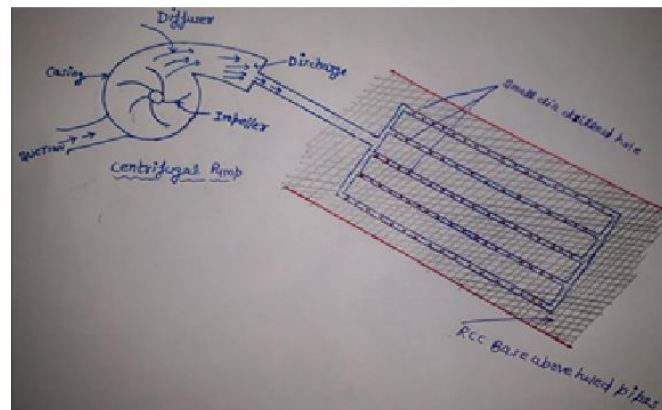 Diffuser
Casing
Discharge
Impeller
Suction
Centrifugal Pump
Small dia drilled hole
RCC Base above holed pipes